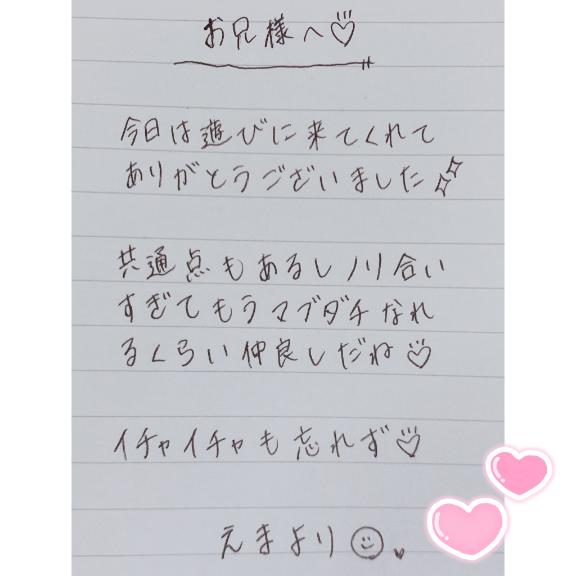 お兄様へ♡
今日は遊びに来てくれて
ありがとうございました✨
共通点もあるしノリ合い
すぎてもうマブダチなれ
るくらい仲良しだね♡
イチャイチャも忘れず♡
えまより☺♥